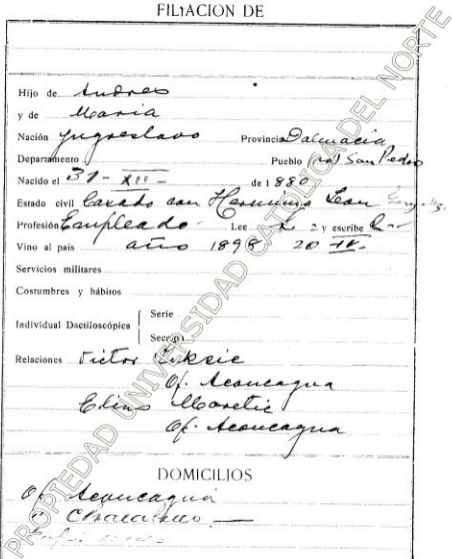 FILIACION DE
Hijo de Andres
y de Maria
Nación Yugoeslavo Provincia Dalmacia
Departamento Pueblo San Pedro
Nacido el 31 - XII - de 1880
Estado civil Casado con Herminia Leon
Profesión Empleado Lee y escribe
Vino al país año 1898 20
Servicios militares
Costumbres y hábitos
Individual Dactiloscópica Serie
Sección
Relaciones Victor
Of. Aconcagua
Maretic
Of. Aconcagua
DOMICILIOS
Of. Aconcagua
PROPIEDAD UNIVERSIDAD CATOLICA DEL NORTE